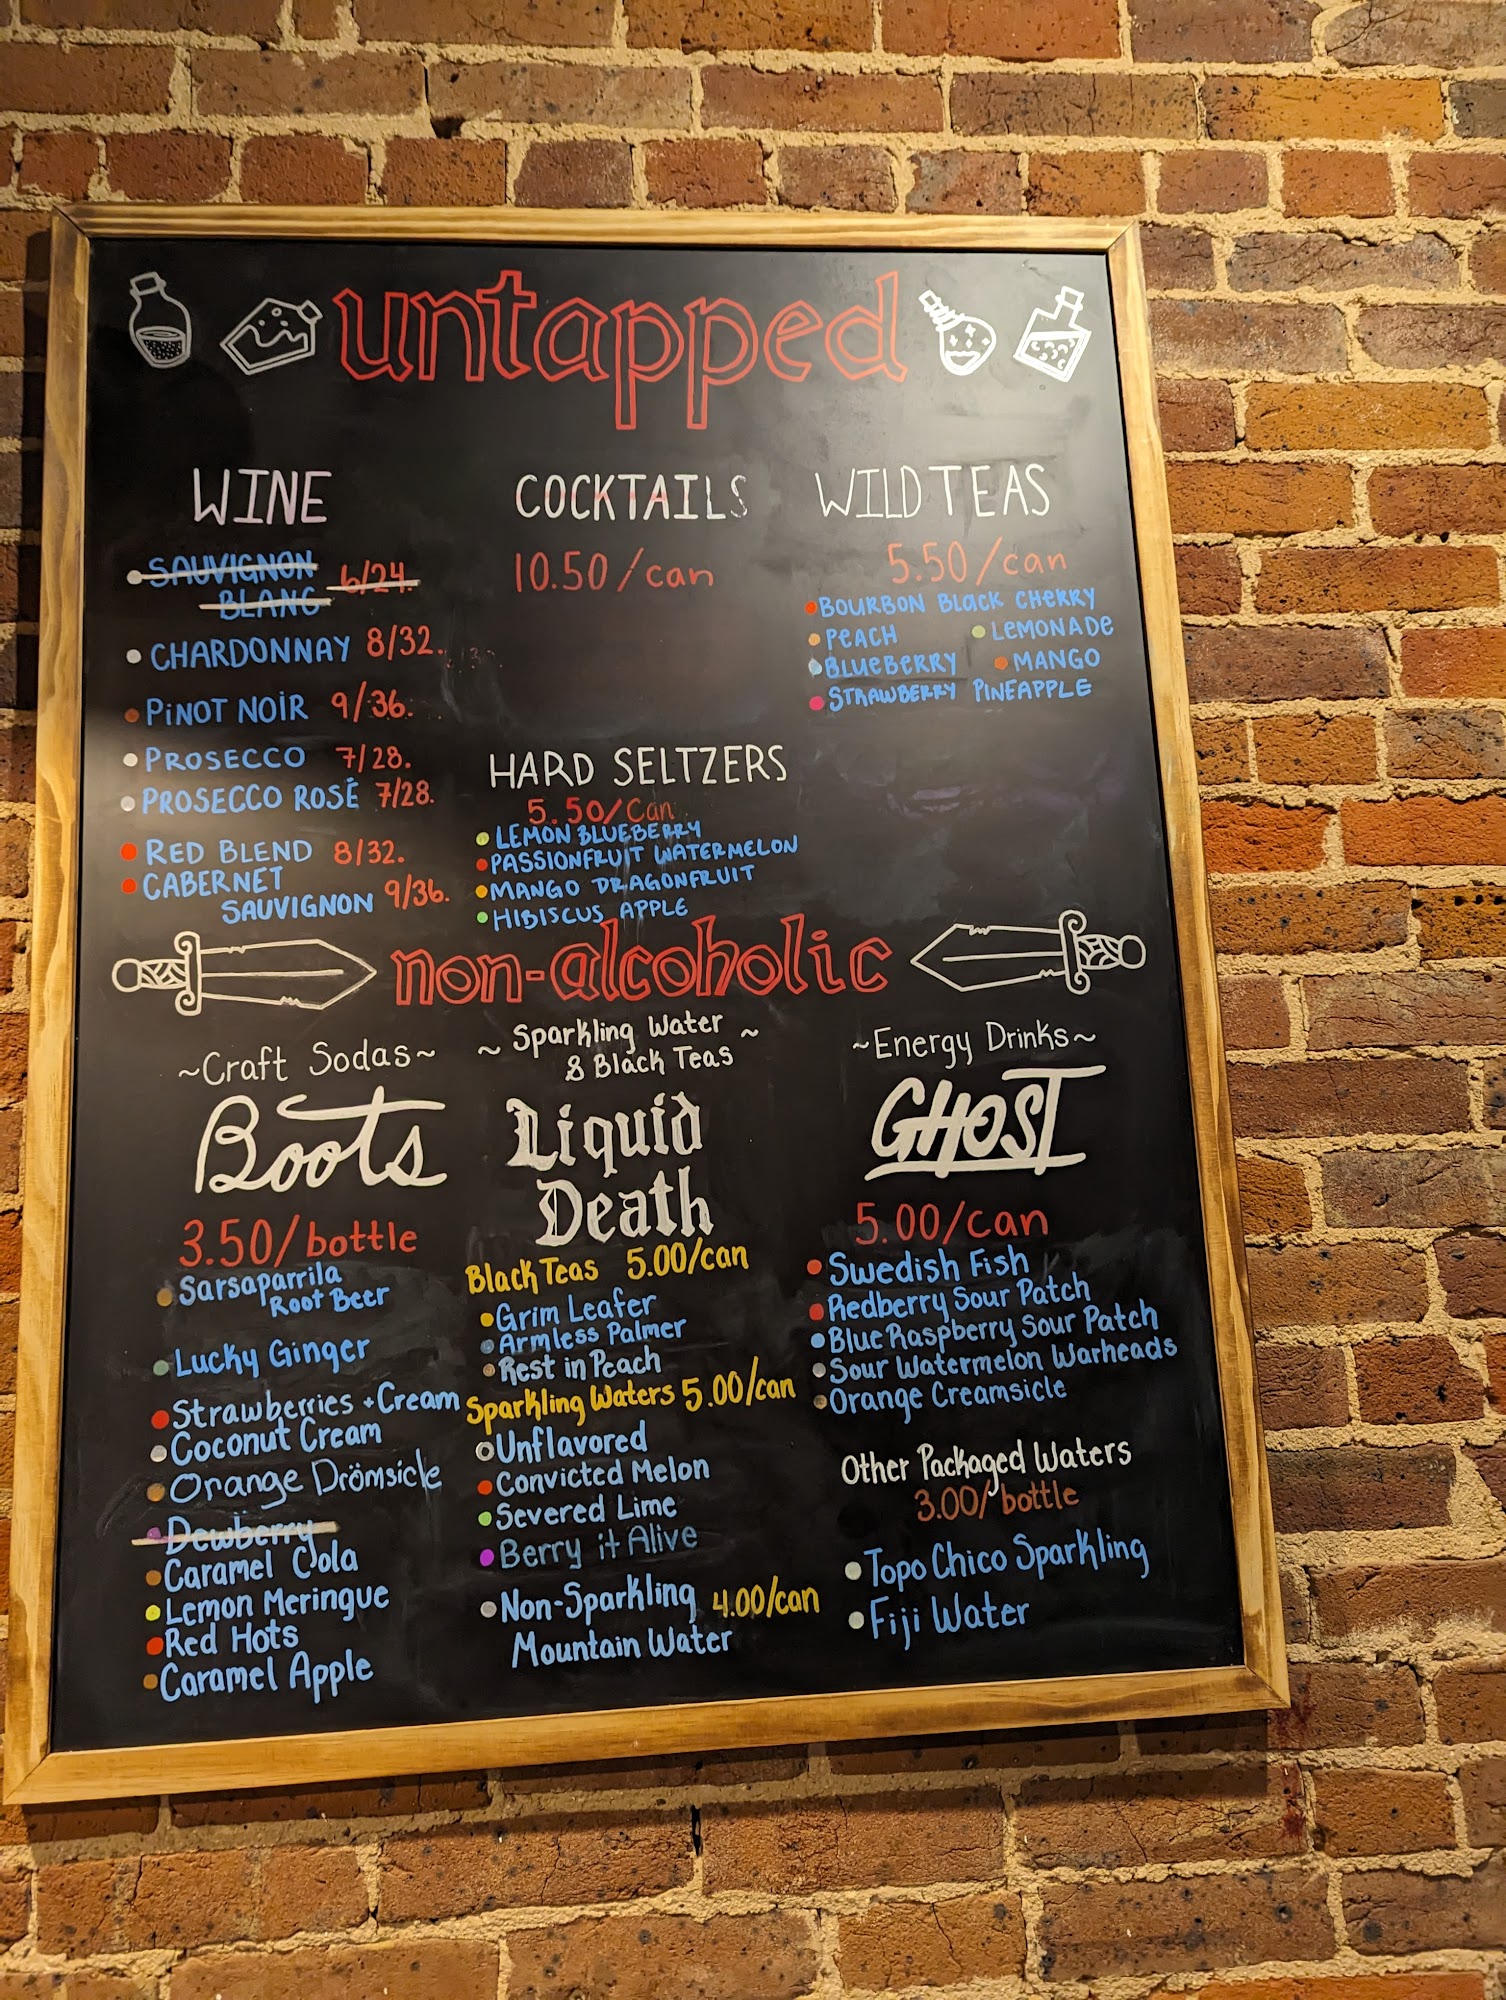 untapped
WINE
SAUVIGNON 6/24.
BLANC
CHARDONNAY 8/32.
PiNOT NOiR 9/36.
PROSECCO 7/28.
PROSECCO ROSÉ 7/28.
RED BLEND 8/32.
CABERNET
SAUVIGNON 9/36.
COCKTAILS
10.50/can
HARD SELTZERS
5.50/Can
LEMON BLUEBERRY
PASSIONFRUIT WATERMELON
MANGO DRAGONFRUIT
HIBISCUS APPLE
WILD TEAS
5.50/can
BOURBON BLACK CHERRY
PEACH LEMONADE
BLUEBERRY MANGO
STRAWBERRY PINEAPPLE
non-alcoholic
~Craft Sodas~
Boots
3.50/bottle
Sarsaparrila
Root Beer
Lucky Ginger
Strawberries + Cream
Coconut Cream
Orange Drömsicle
Dewberry
Caramel Cola
Lemon Meringue
Red Hots
Caramel Apple
~ Sparkling Water ~
& Black Teas
Liquid
Death
Black Teas 5.00/can
Grim Leafer
Armless Palmer
Rest in Peach
Sparkling Waters 5.00/can
Unflavored
Convicted Melon
Severed Lime
Berry it Alive
Non-Sparkling 4.00/can
Mountain Water
~Energy Drinks~
GHOST
5.00/can
Swedish Fish
Redberry Sour Patch
Blue Raspberry Sour Patch
Sour Watermelon Warheads
Orange Creamsicle
Other Packaged Waters
3.00/bottle
Topo Chico Sparkling
Fiji Water